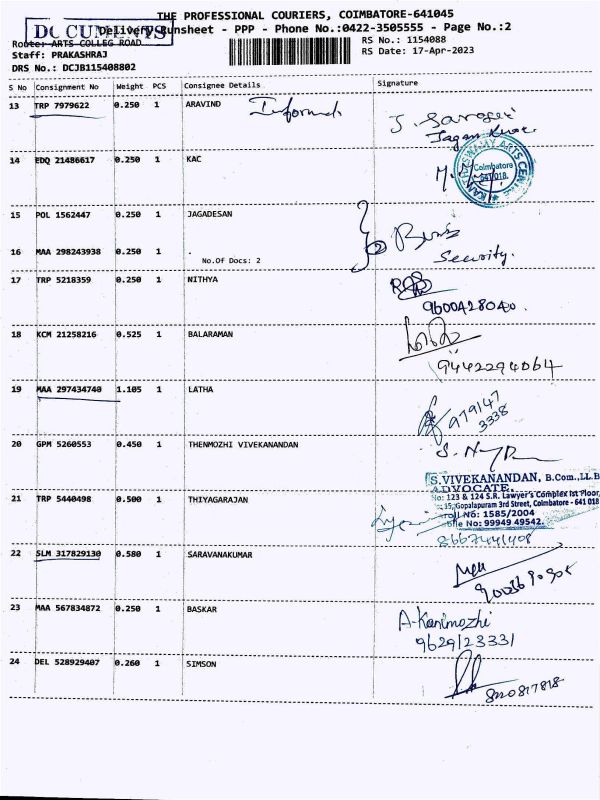 THE PROFESSIONAL COURIERS, COIMBATORE-641045
DOCUMENTS
Delivery Runsheet - PPP - Phone No.:0422-3505555 - Page No.:2
Route: ARTS COLLEG ROAD
RS No.: 1154088
Staff: PRAKASHRAJ
RS Date: 17-Apr-2023
DRS No.: DCJB115408802
S No Consignment No Weight PCS Consignee Details Signature
13 TRP 7979622 0.250 1 ARAVIND
14 EDQ 21486617 0.250 1 KAC
Coimbatore
641 018.
15 POL 1562447 0.250 1 JAGADESAN
16 MAA 298243938 0.250 1 .
No.Of Docs: 2
2
Security.
17 TRP 5218359 0.250 1 NITHYA
9600428040.
18 KCM 21258216 0.525 1 BALARAMAN
9442294064
19 MAA 297434740 1.105 1 LATHA
979147
3338
20 GPM 5260553 0.450 1 THENMOZHI VIVEKANANDAN
S.VIVEKANANDAN, B.Com.,LL.B
ADVOCATE.
No: 123 & 124 S.R. Lawyer's Complex Ist Floor,
Gopalapuram 3rd Street, Coimbatore - 641 018
No: 1585/2004
No: 99949 49542.
21 TRP 5440498 0.500 1 THIYAGARAJAN
22 SLM 317829130 0.580 1 SARAVANAKUMAR
23 MAA 567834872 0.250 1 BASKAR
A-Kanimozhi
9629123331
24 DEL 528929407 0.260 1 SIMSON
8220817818